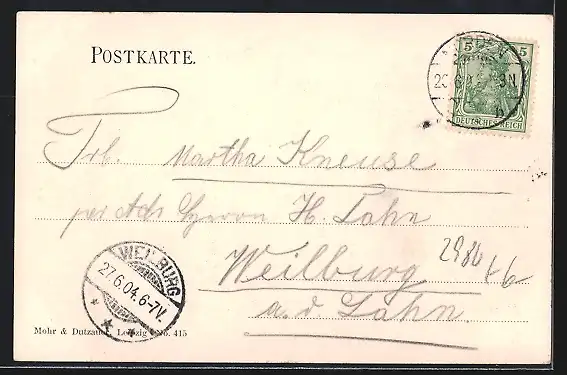 POSTKARTE.
5 5
DEUTSCHES REICH
Frl. Martha Kneuse
per Adr Herrn H. Lahn
Weilburg
a. d. Lahn.
WEILBURG
27.6.04. 6-7V.
Mohr & Dutzauer, Leipzig No. 415